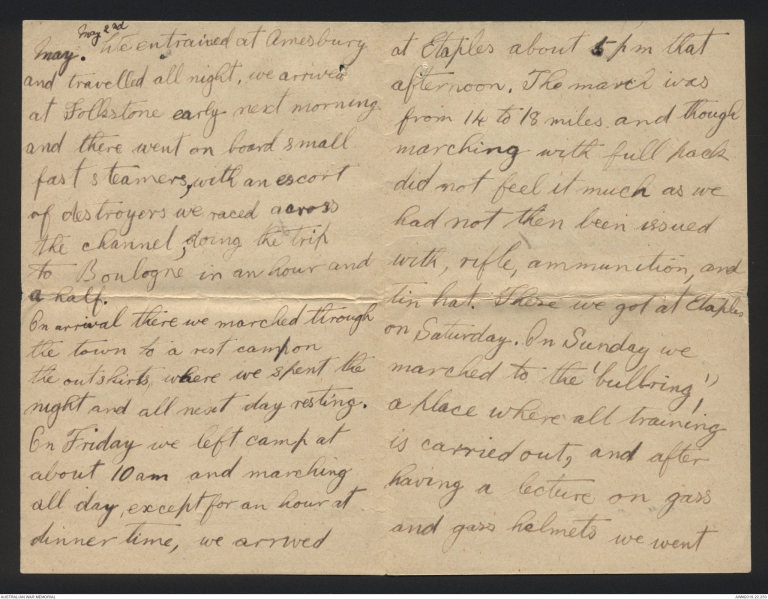 May 2nd
May. We entrained at Amesbury
and travelled all night, we arrived
at Folkstone early next morning
and there went on board small
fast steamers, with an escort
of destroyers we raced across
the channel, doing the trip
to Boulogne in an hour and
a half.
On arrival there we marched through
the town to a rest camp on
the outskirts, where we spent the
night and all next day resting.
On Friday we left camp at
about 10 am and marching
all day, except for an hour at
dinner time, we arrived
at Etaples about 5 pm that
afternoon. The march was
from 14 to 18 miles and though
marching with full pack
did not feel it much as we
had not then been issued
with, rifle, ammunition, and
tin hat. These we got at Etaples
on Saturday. On Sunday we
marched to the 'bullring',
a place where all training
is carried out, and after
having a lecture on gass
and gass helmets we went
AUSTRALIAN WAR MEMORIAL